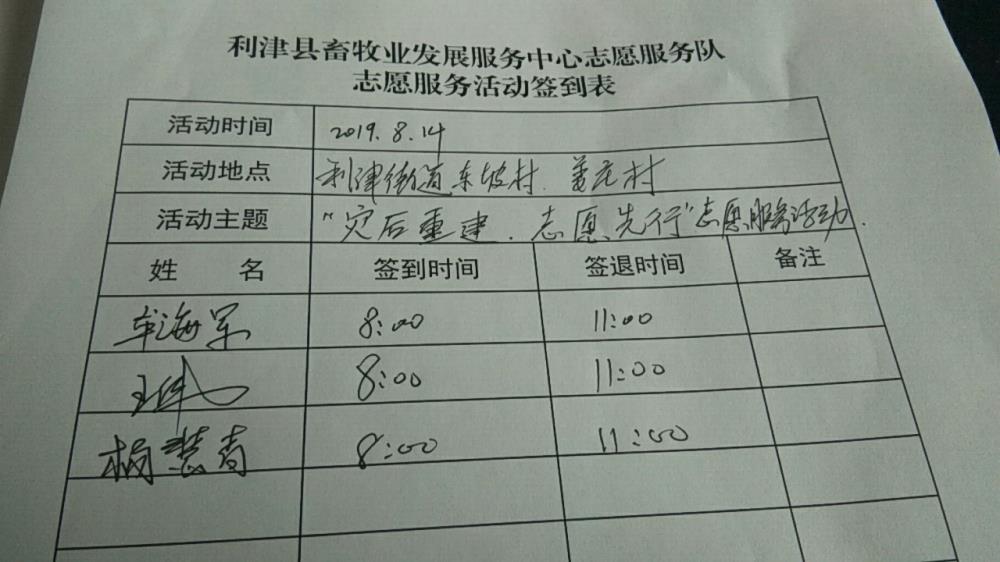 利津县畜牧业发展服务中心志愿服务队
志愿服务活动签到表
活动时间 2019.8.14
活动地点 利津街道东坡村. 村
活动主题 "灾后重建.志愿先行"志愿服务活动.
姓 名 签到时间 签退时间 备注
海军 8:00 11:00
王 8:00 11:00
杨慧青 8:00 11:00